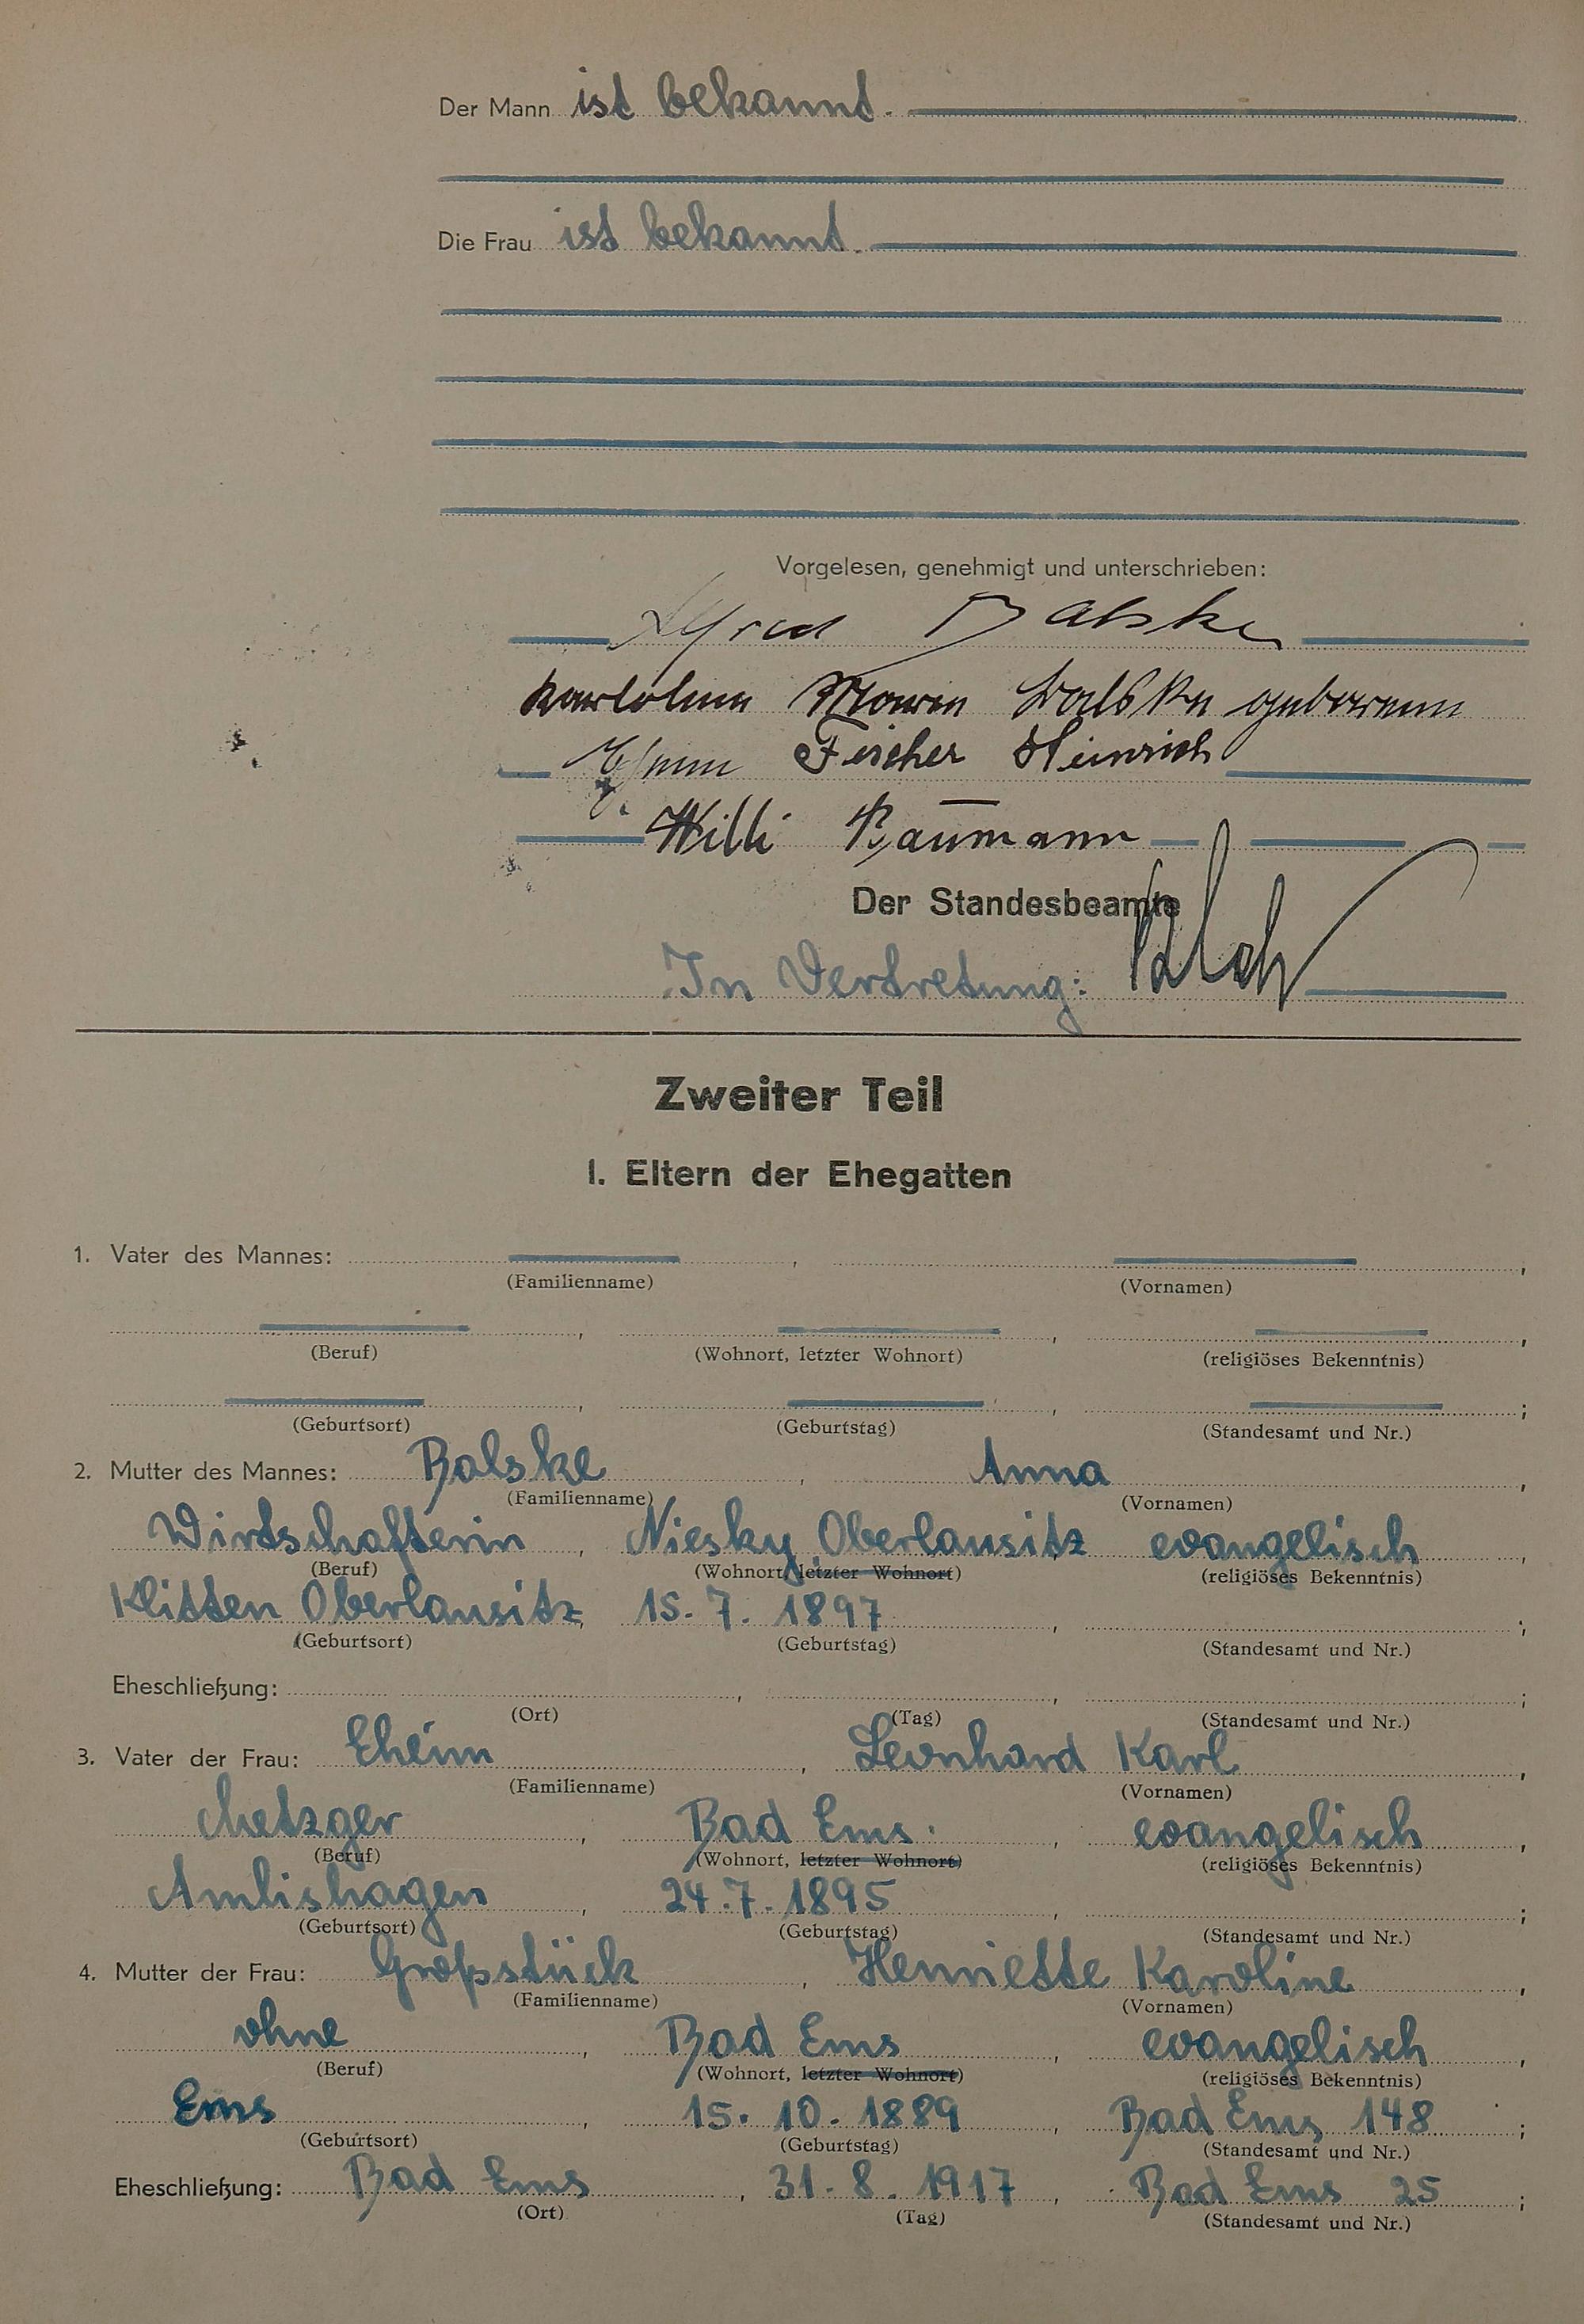 Der Mann ist bekannt.
Die Frau ist bekannt.
Vorgelesen, genehmigt und unterschrieben:
Alfred Balske
Karoline Maria Balske geborene
Eheim Fischer Heinrich
Willi Baumann
Der Standesbeamte
In Vertretung:
Zweiter Teil
I. Eltern der Ehegatten
1. Vater des Mannes: , ,
(Familienname) (Vornamen)
, , ,
(Beruf) (Wohnort, letzter Wohnort) (religiöses Bekenntnis)
, , ;
(Geburtsort) (Geburtstag) (Standesamt und Nr.)
2. Mutter des Mannes: Balske , Anna ,
(Familienname) (Vornamen)
Wirtschafterin , Niesky Oberlausitz evangelisch ,
(Beruf) (Wohnort, letzter Wohnort) (religiöses Bekenntnis)
Klitten Oberlausitz, 15. 7. 1897 , ;
(Geburtsort) (Geburtstag) (Standesamt und Nr.)
Eheschließung: , , ;
(Ort) (Tag) (Standesamt und Nr.)
3. Vater der Frau: Eheim , Leonhard Karl ,
(Familienname) (Vornamen)
Metzger , Bad Ems , evangelisch ,
(Beruf) (Wohnort, letzter Wohnort) (religiöses Bekenntnis)
Amlishagen , 24. 7. 1895 , ;
(Geburtsort) (Geburtstag) (Standesamt und Nr.)
4. Mutter der Frau: Großstück , Henriette Karoline ,
(Familienname) (Vornamen)
ohne , Bad Ems , evangelisch ,
(Beruf) (Wohnort, letzter Wohnort) (religiöses Bekenntnis)
Ems , 15. 10. 1889 , Bad Ems 148 ;
(Geburtsort) (Geburtstag) (Standesamt und Nr.)
Eheschließung: Bad Ems , 31. 8. 1917 , Bad Ems 25 ;
(Ort) (Tag) (Standesamt und Nr.)